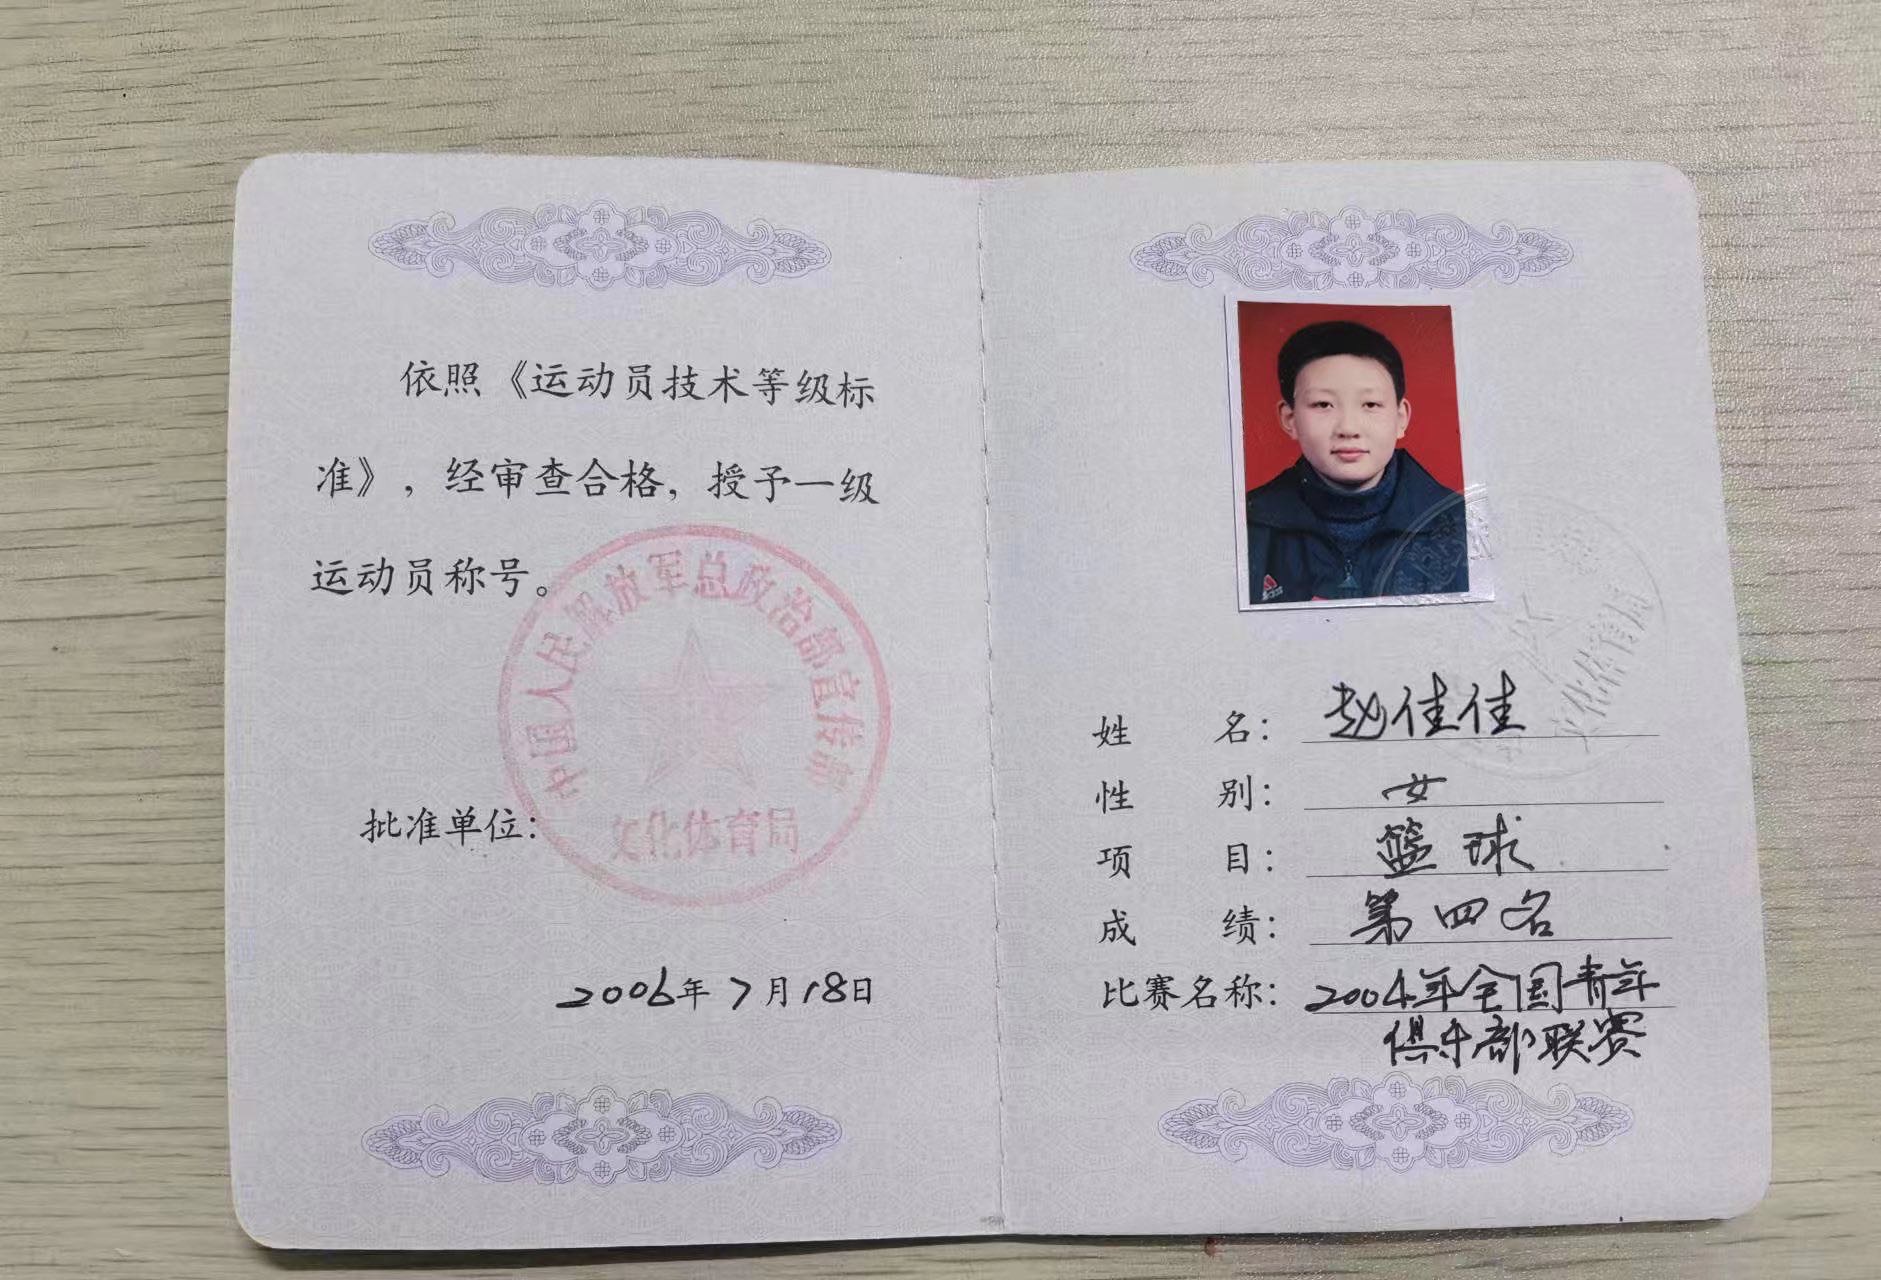 依照《运动员技术等级标
准》，经审查合格，授予一级
运动员称号。
中国人民解放军总政治部宣传部
文化体育局
批准单位：
2006年7月18日
文化体育局
姓 名：赵佳佳
性 别：女
项 目：篮球
成 绩：第四名
比赛名称：2004年全国青年
俱乐部联赛